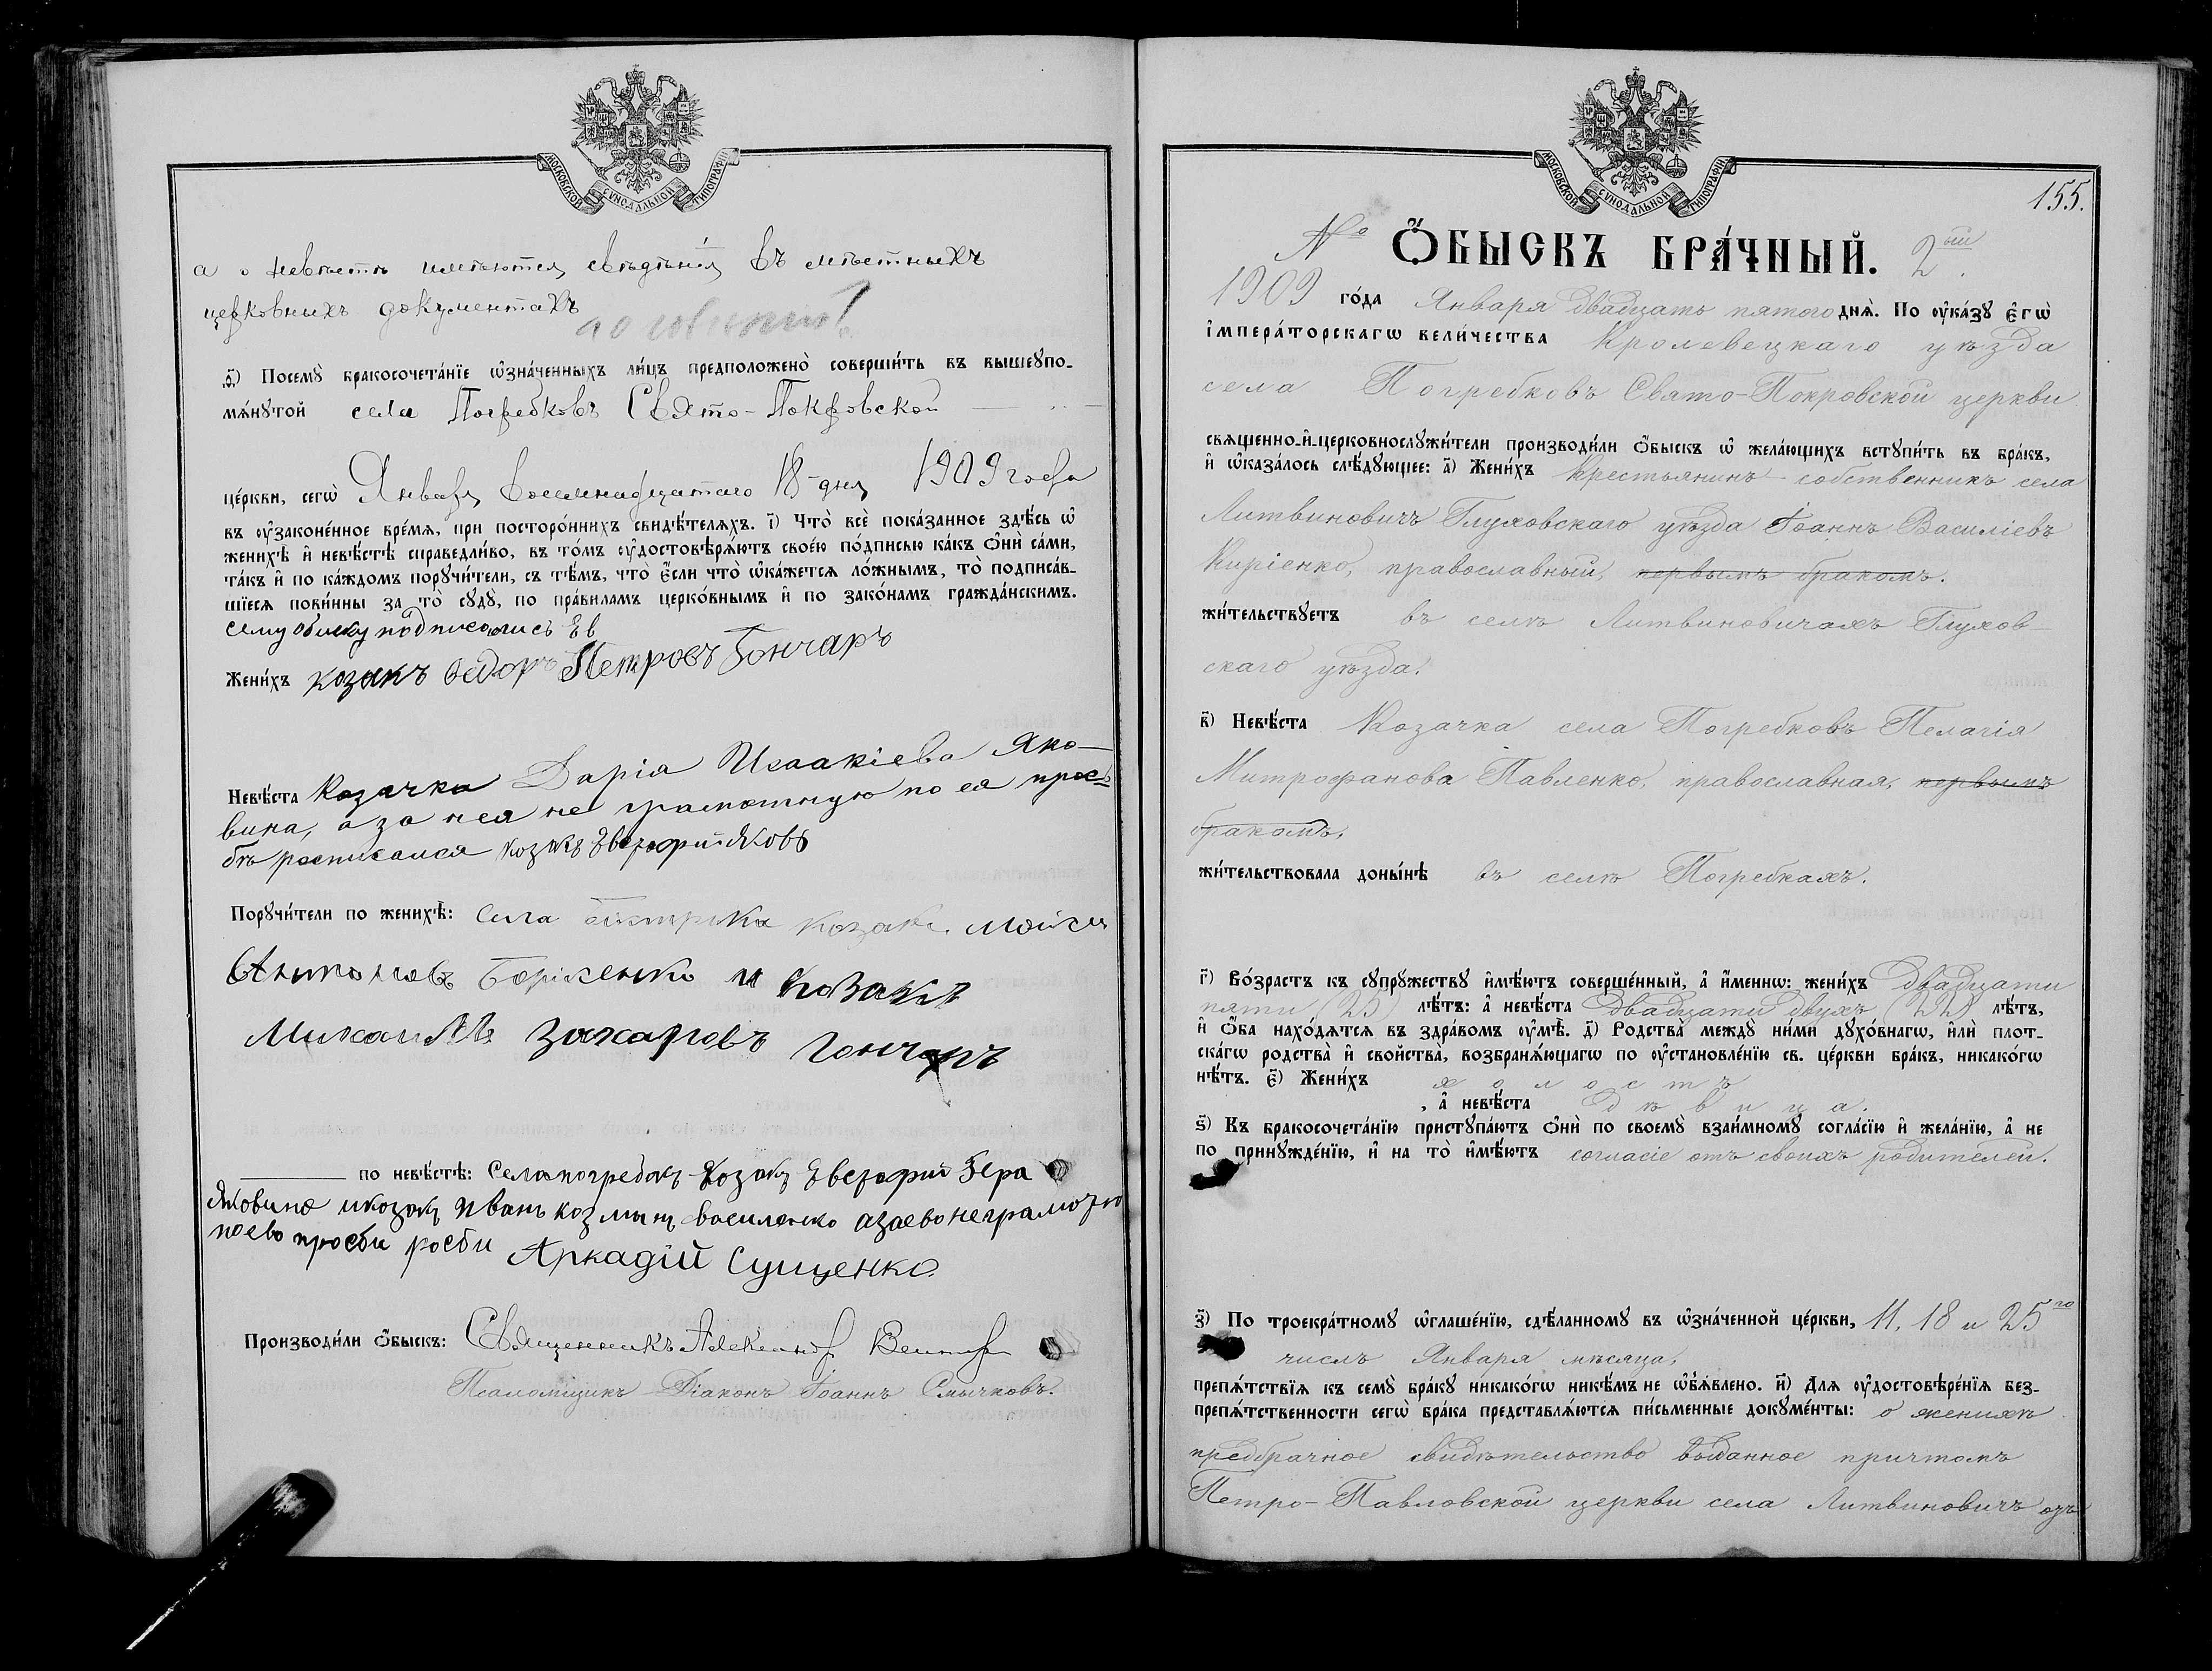 МОСКОВСКОЙ СУНОДАЛЬНОЙ ТИПОГРАФІИ
а о невѣстѣ имѣются свѣдѣнія въ мѣстныхъ
церковныхъ документахъ
ѳ҃) Посемꙋ̀ бракосочета́нїе ѡ҆зна́ченныхъ ли́цъ предположено̀ соверши́ть въ вышеꙋпо-
мѧ́нꙋтой села Погребковъ Свято-Покровской
це́ркви, сегѡ̀ Января восемнадцатаго 18-дня 1909 года
въ ᲂу҆законе́нное вре́мѧ, при посторо́ннихъ свидѣ́телѧхъ. і҃) Что̀ всѐ пока́занное здѣ́сь ѡ҆
женихѣ̀ и҆ невѣ́стѣ справедли́во, въ то́мъ ᲂу҆достовѣрѧ́ютъ свое́ю по́дписью ка́къ ѻ҆нѝ са́ми,
та́къ и҆ по ка́ждомъ порꙋчи́тели, съ тѣ́мъ, что̀ є҆́сли что̀ ѡ҆ка́жетсѧ ло́жнымъ, то̀ подписа́в-
шїесѧ пови́нны за то̀ сꙋдꙋ̀, по пра́виламъ церко́внымъ и҆ по зако́намъ гражда́нскимъ.
сему обыску подписались
Жени́хъ козакъ Ѳедоръ Петровъ Гончаръ
Невѣ́ста Козачка Дарія Исаакіева Яко-
вина, а за нея не грамотную по ея прось
бѣ росписался козакъ Яков
Порꙋчи́тели по женихѣ̀: Села козакъ
Антоновъ и козакъ
Михаилъ Захаровъ Гончаръ
по невѣ́стѣ: Села погребокъ козакъ Гера
Яковина и козакъ Иванъ козминъ василенко а заево неграмотно
поево просби росби Аркадій Сущенко.
Производи́ли ѻ҆́быскъ: Священникъ Александръ
Псаломщикъ Діаконъ Іоаннъ Смычковъ.
МОСКОВСКОЙ СУНОДАЛЬНОЙ ТИПОГРАФІИ
155.
№ Ѻ҆́БЫСКЪ БРА́ЧНЫЙ. 2ый.
1909 го́да Января двадцать пятого днѧ̀. По ᲂу҆ка́зꙋ Є҆гѡ̀
і҆мпера́торскагѡ вели́чества Кролевецкаго уѣзда
села Погребковъ Свято-Покровской церкви
свѧщенно-и҆-церковнослꙋжи́тели производи́ли ѻ҆́быскъ ѡ҆ жела́ющихъ встꙋпи́ть въ бра́къ,
и҆ ѡ҆каза́лось слѣ́дꙋющее: а҃) Жени́хъ Крестьянинъ-собственникъ села
Литвиновичъ Глуховскаго уѣзда Іоаннъ Василіевъ
Киріенко, православный, первымъ бракомъ.
жи́тельствꙋетъ въ селѣ Литвиновичахъ Глухов-
скаго уѣзда.
в҃) Невѣ́ста Козачка села Погребковъ Пелагія
Митрофанова Павленко, православная, первымъ
бракомъ.
жи́тельствовала доны́нѣ въ селѣ Погребкахъ.
г҃) Во́зрастъ къ сꙋпрꙋ́жествꙋ и҆мѣ́ютъ соверше́нный, а҆ и҆́меннѡ: жени́хъ двадцати
пяти (25) лѣ́тъ: а҆ невѣ́ста двадцати двухъ (22) лѣ́тъ,
и҆ ѻ҆́ба нахо́дѧтсѧ въ здра́вомъ ᲂу҆мѣ̀. д҃) Родства̀ междꙋ̀ ни́ми дꙋхо́внагѡ, и҆лѝ плот-
ска́гѡ родства̀ и҆ сво́йства, возбранѧ́ющагѡ по ᲂу҆становле́нїю св. це́ркви бра́къ, никако́гѡ
нѣ́тъ. є҃) Жени́хъ холостъ
, а҆ невѣ́ста дѣвица.
ѕ҃) Къ бракосочета́нїю пристꙋпа́ютъ ѻ҆нѝ по своемꙋ̀ взаи́мномꙋ согла́сїю и҆ жела́нїю, а҆ не
по принꙋжде́нїю, и҆ на то̀ и҆мѣ́ютъ согласіе отъ своихъ родителей.
з҃) По троекра́тномꙋ ѡ҆глаше́нїю, сдѣ́ланномꙋ въ ѡ҆зна́ченной це́ркви, 11, 18 и 25го
числъ Января мѣсяца,
препѧ́тствїѧ къ семꙋ̀ бра́кꙋ никако́гѡ никѣ́мъ не ѡ҆б̾ѧ́влено. и҃) Длѧ ᲂу҆достовѣре́нїѧ без-
препѧ́тственности сегѡ̀ бра́ка представлѧ́ютсѧ пи́сьменные докꙋме́нты: о женихѣ
предбрачное свидѣтельство выданное причтомъ
Петро-Павловской церкви села Литвиновичъ